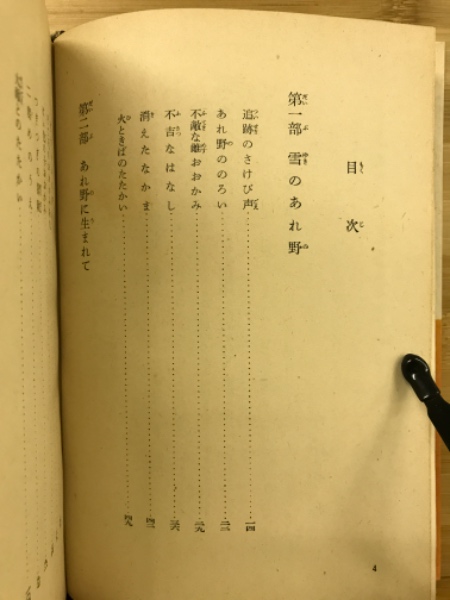 目次
第一部 雪のあれ野
追跡のさけび声 一四
あれ野ののろい 二三
不敵な雌おおかみ 二九
不吉なはなし 三六
消えたなかま 四二
火ときばのたたかい 四九
第二部 あれ野に生まれて
4